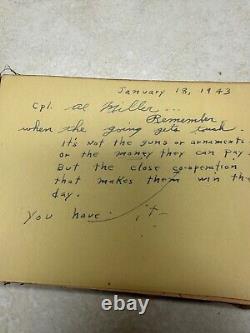 January 18, 1943
Cpl. Al Miller...
Remember
when the going gets tuch.
It's not the guns or ornaments
or the money they can pay.
But the close co-operation
that makes them win the
day.
You have it